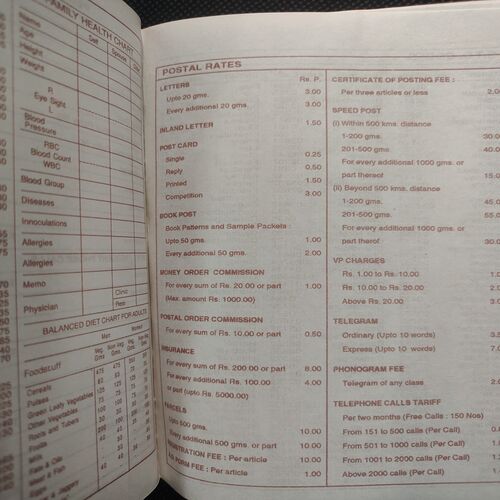 FAMILY HEALTH CHART
Self
Spouse
Name
Age
Height
Weight
R
Eye Sight
L
Blood
Pressure
RBC
Blood Count
WBC
Blood Group
Diseases
Innoculations
Allergies
Allergies
Memo
Clinic
Physician
Resi
BALANCED DIET CHART FOR ADULTS
Foodstuff
Cereals
Pulses
Green Leafy Vegetables
Other Vegetables
Roots and Tubers
Fruits
POSTAL RATES
Rs. P.
LETTERS
Upto 20 gms. 3.00
Every additional 20 gms. 3.00
INLAND LETTER 1.50
POST CARD
Single 0.25
Reply 0.50
Printed 1.50
Competition 3.00
BOOK POST
Book Patterns and Sample Packets :
Upto 50 gms. 1.00
Every additional 50 gms. 2.00
MONEY ORDER COMMISSION
For every sum of Rs. 20.00 or part 1.00
(Max. amount Rs. 1000.00)
POSTAL ORDER COMMISSION
For every sum of Rs. 10.00 or part 0.50
INSURANCE
For every sum of Rs. 200.00 or part 8.00
For every additional Rs. 100.00 4.00
or part (upto Rs. 5000.00)
PARCELS
Upto 500 gms. 10.00
Every additional 500 gms. or part 10.00
REGISTRATION FEE : Per article 10.00
FORM FEE : Per article 1.00
CERTIFICATE OF POSTING FEE :
Per three articles or less 2.0
SPEED POST
(i) Within 500 kms. distance
1-200 gms. 30.0
201-500 gms. 40.0
For every additional 1000 gms. or
part thereof 15.0
(ii) Beyond 500 kms. distance
1-200 gms. 45.0
201-500 gms. 55.0
For every additional 1000 gms. or
part therof 30.0
VP CHARGES
Rs. 1.00 to Rs. 10.00 1.0
Rs. 10.00 to Rs. 20.00 2.0
Above Rs. 20.00 3.0
TELEGRAM
Ordinary (Upto 10 words) 3.5
Express (Upto 10 words) 7.0
PHONOGRAM FEE
Telegram of any class 2.0
TELEPHONE CALLS TARIFF
Per two months (Free Calls : 150 Nos)
From 151 to 500 calls (Per Call) 0.8
From 501 to 1000 calls (Per Call) 1.
From 1001 to 2000 calls (Per Call) 1.
Above 2000 calls (Per Call) 1.